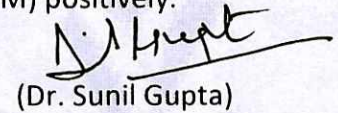 M) positively.
(Dr. Sunil Gupta)